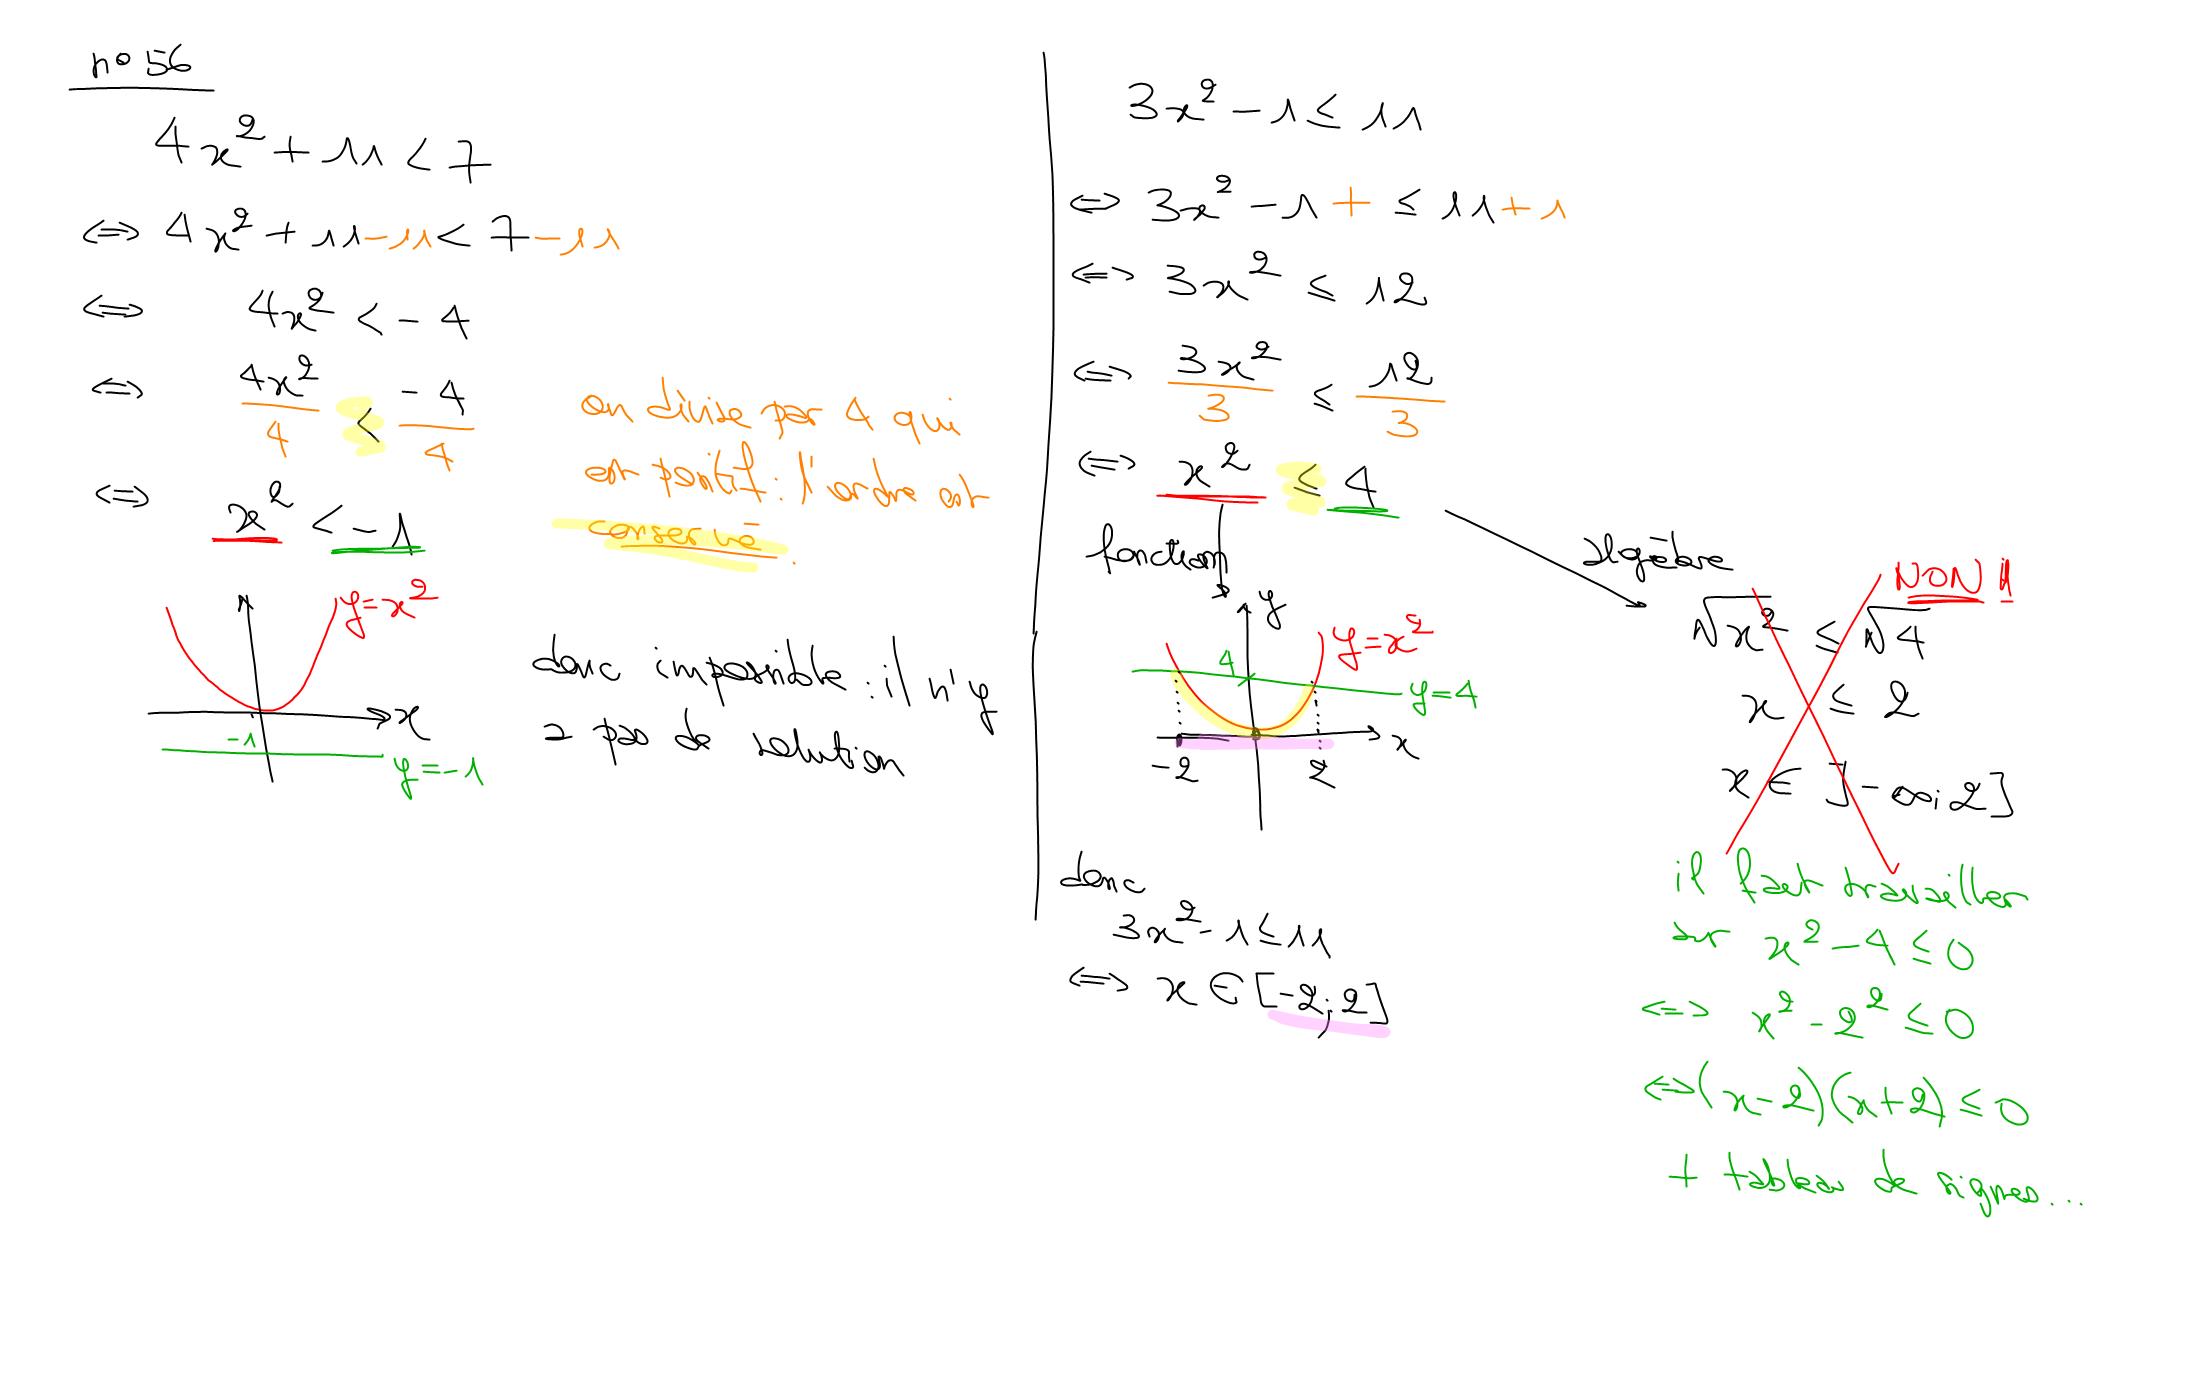 n° 56
4x² + 11 < 7
⇔ 4x² + 11 - 11 < 7 - 11
⇔ 4x² < - 4
⇔ 4x²/4 < - 4/4
on divise par 4 qui
est positif : l'ordre est
conservé.
⇔ x² < - 1
y = x²
x
-1
y = -1
donc impossible : il n'y
a pas de solution
3x² - 1 ≤ 11
⇔ 3x² - 1 + ≤ 11 + 1
⇔ 3x² ≤ 12
⇔ 3x²/3 ≤ 12/3
⇔ x² ≤ 4
fonction
y
y = x²
4
y = 4
x
-2
2
donc
3x² - 1 ≤ 11
⇔ x ∈ [-2; 2]
algèbre
NON !!
√x² ≤ √4
x ≤ 2
x ∈ ]-∞; 2]
il faut travailler
sur x² - 4 ≤ 0
⇔ x² - 2² ≤ 0
⇔ (x - 2)(x + 2) ≤ 0
+ tableau de signes...